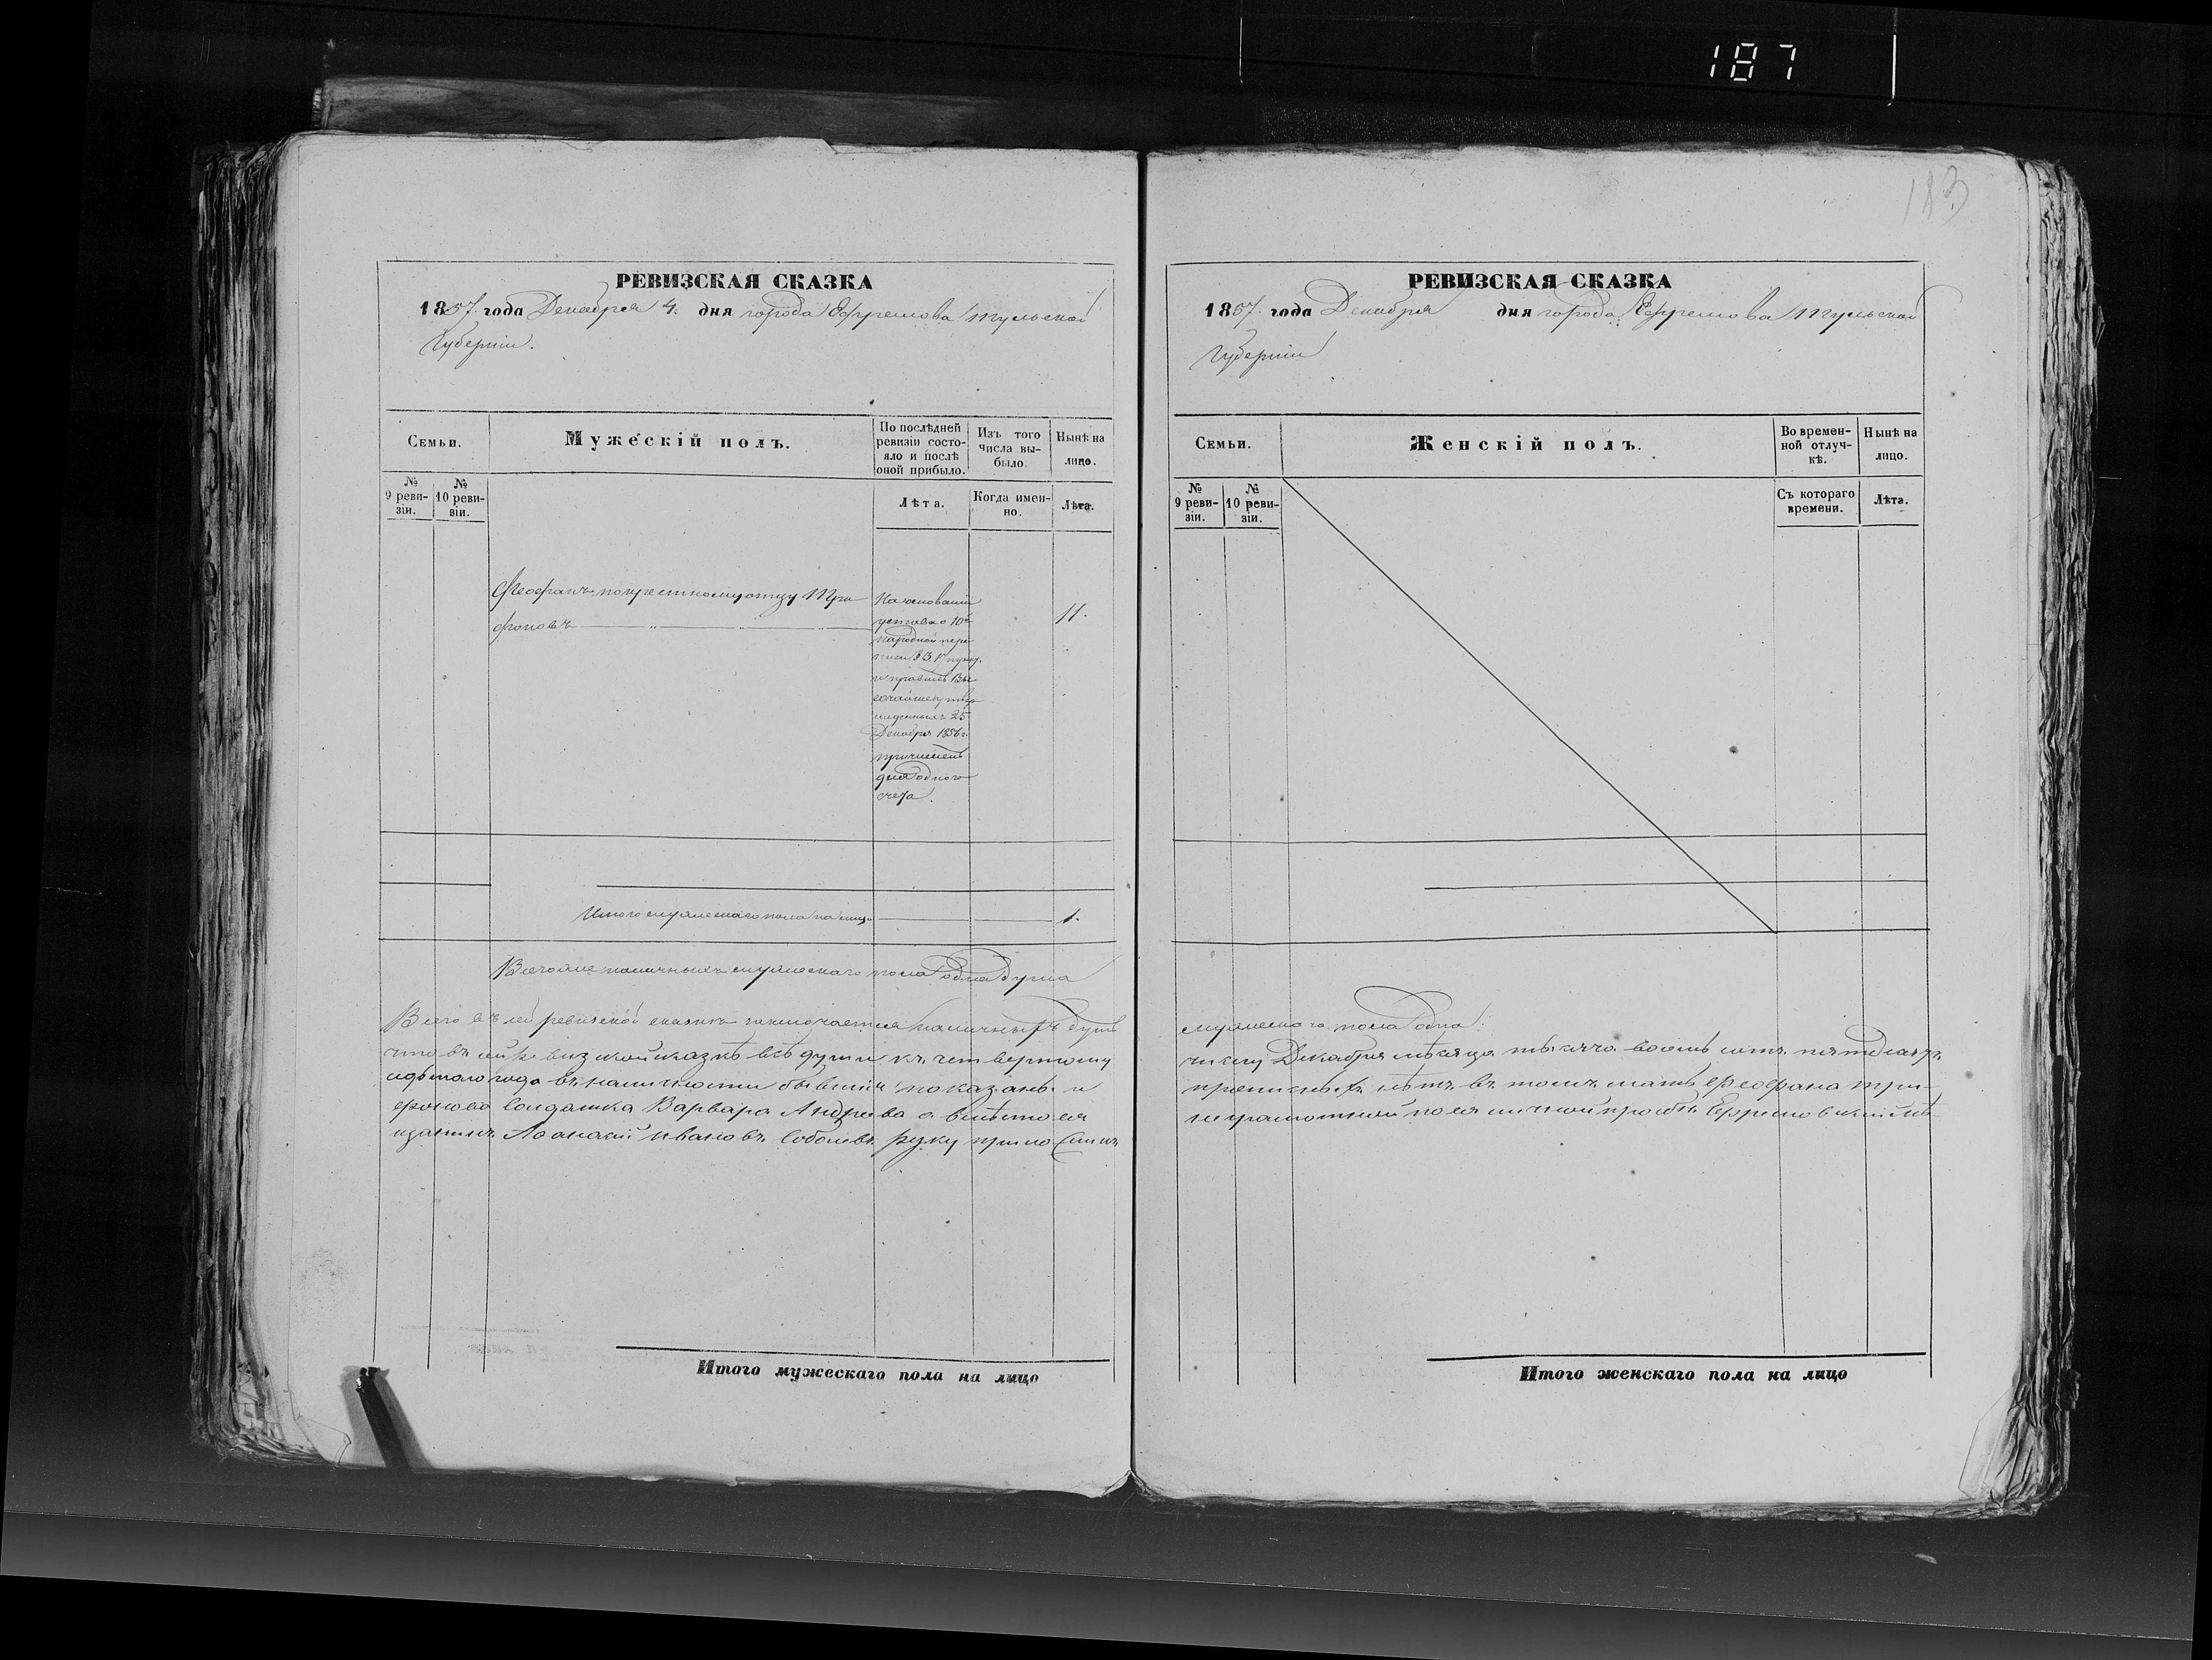 187
183
РЕВИЗСКАЯ СКАЗКА
1857. года Декабря 4. дня города Ефремова Тульской
Губерніи.
Семьи.
Мужескій полъ.
По послѣдней
ревизіи состо-
яло и послѣ
оной прибыло.
Изъ того
числа вы-
было.
Нынѣ на
лицо.
№
9 реви-
зіи.
№
10 реви-
зіи.
Лѣта.
Когда имен-
но.
Лѣта.
Феофанъ по крестному отцу Три
фоновъ
11.
На основаніи
устава о 10й
народной пере
писи § 3
и правилъ Вы
сочайше утвер
жденныхъ 25
Декабря 1856 г.
причисленъ
для одного
счета.
Итого мужескаго пола на лицо 1.
Всего же наличныхъ мужескаго пола одна душа
Всего въ сей ревизской сказкѣ заключается наличныхъ душъ
что въ сей ревизской сказкѣ всѣ души къ четвертому
седьмаго года въ наличности бывшіи показаны и
фонова Солдатка Варвара Андреева а вмѣсто ея
щанинъ Афанасій Ивановъ Соболевъ руку приложилъ
Итого мужескаго пола на лицо
РЕВИЗСКАЯ СКАЗКА
1857. года Декабря дня города Ефремова Тульской
Губерніи
Семьи.
Женскій полъ.
Во времен-
ной отлуч-
кѣ.
Нынѣ на
лицо.
№
9 реви-
зіи.
№
10 реви-
зіи.
Съ котораго
времени.
Лѣта.
мужескаго пола одна.
числу Декабря мѣсяца тысяча восемь сотъ пятдесятъ
прописныхъ нѣтъ въ томъ мать Феофана Три-
неграмотной по ея личной прозбѣ Ефремовскій мѣ-
Итого женскаго пола на лицо